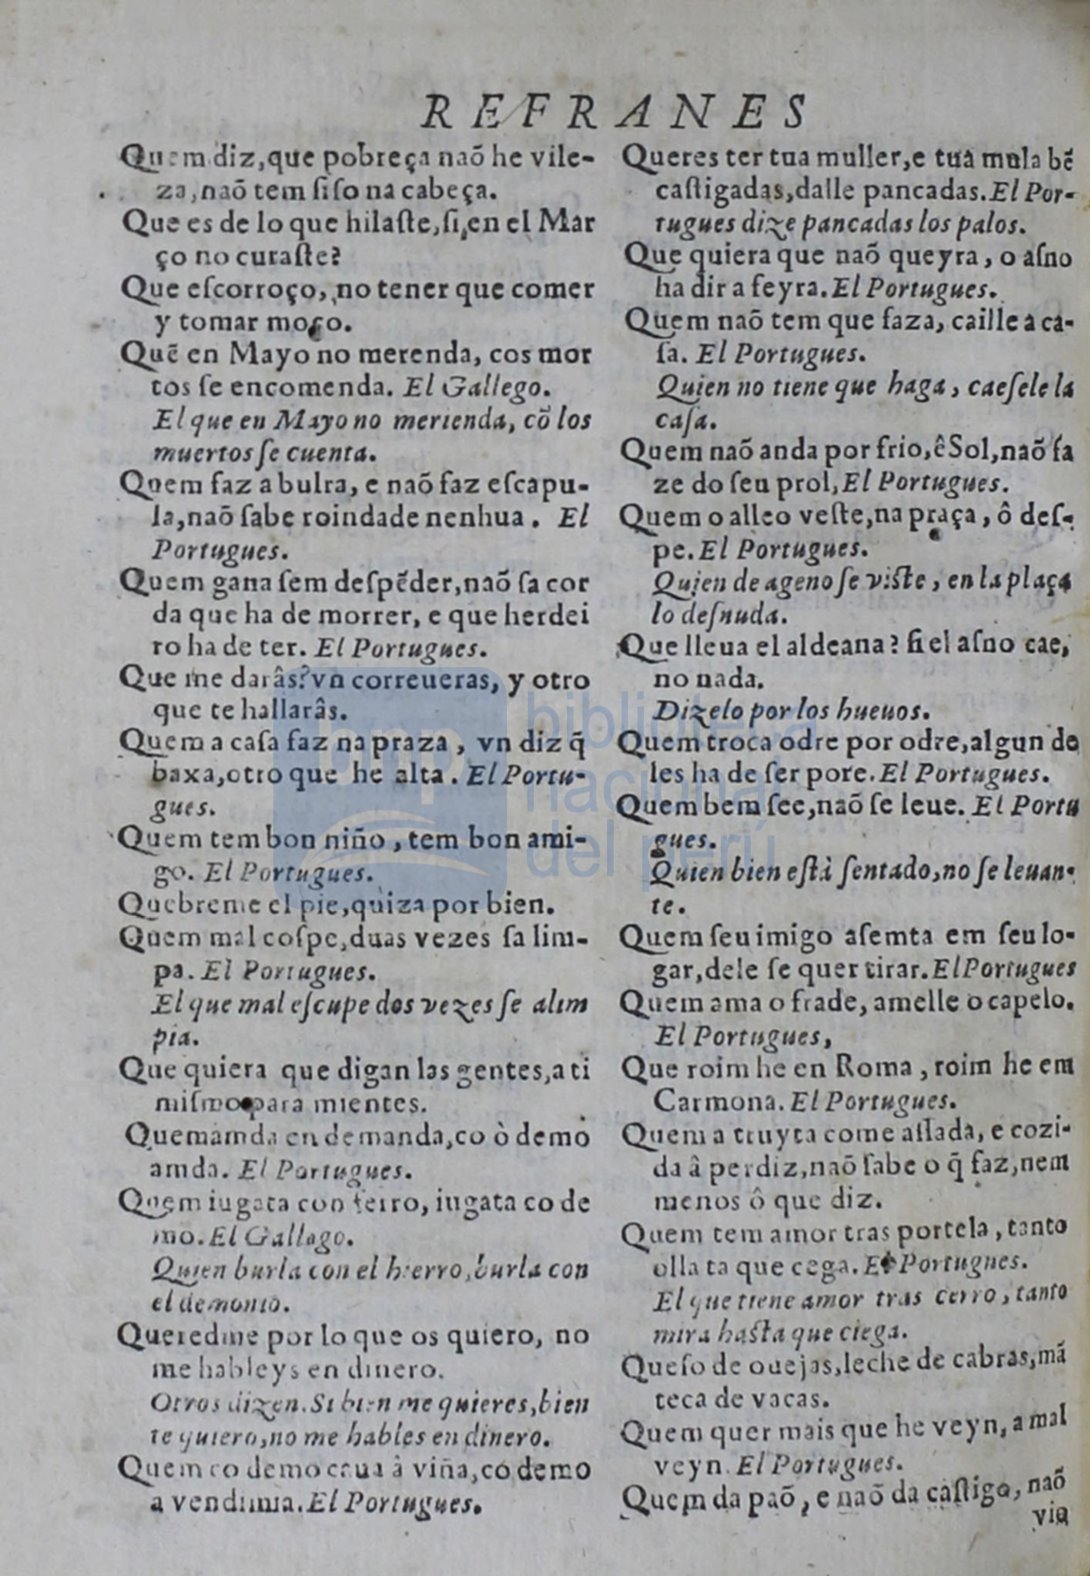 REFRANES
Quem diz, que pobreça naõ he vile-
za, naõ tem ſiſo na cabeça.
Que es de lo que hilaſte, ſi, en el Mar
ço no curaſte?
Que eſcorroço, no tener que comer
y tomar moço.
Quẽ en Mayo no merenda, cos mor
tos ſe encomenda. El Gallego.
El que en Mayo no merienda, cõ los
muertos ſe cuenta.
Quem faz a bulra, e naõ faz eſcapu-
la, naõ ſabe roindade nenhua. El
Portugues.
Quem gana ſem deſpẽder, naõ ſa cor
da que ha de morrer, e que herdei
ro ha de ter. El Portugues.
Que me darâs? vn correueras, y otro
que te hallarâs.
Quem a caſa faz na praza, vn diz q̃
baxa, otro que he alta. El Portu-
gues.
Quem tem bon niño, tem bon ami-
go. El Portugues.
Quebreme el pie, quiza por bien.
Quem mal coſpe, duas vezes ſa lim-
pa. El Portugues.
El que mal eſcupe dos vezes ſe alim
pia.
Que quiera que digan las gentes, a ti
miſmo para mientes.
Quem amda en demanda, co ò demo
amda. El Portugues.
Quem iugata con ferro, iugata co de
mo. El Gallago.
Quien burla con el hierro, burla con
el demonio.
Queredme por lo que os quiero, no
me hableys en dinero.
Otros dizen. Si bien me quieres, bien
te quiero, no me hables en dinero.
Quem co demo caua â viña, có demo
a vendimia. El Portugues.
Queres ter tua muller, e tua mula bẽ
caſtigadas, dalle pancadas. El Por-
tugues dize pancadas los palos.
Que quiera que naõ queyra, o aſno
ha dir a feyra. El Portugues.
Quem naõ tem que faza, caille a ca-
ſa. El Portugues.
Quien no tiene que haga, caeſele la
caſa.
Quem naõ anda por frio, ê Sol, naõ fa
ze do ſeu prol, El Portugues.
Quem o alleo veſte, na praça, ô deſ-
pe. El Portugues.
Quien de ageno ſe viſte, en la plaça
lo deſnuda.
Que lleua el aldeana? ſi el aſno cae,
no nada.
Dizelo por los hueuos.
Quem troca odre por odre, algun de
les ha de ſer pore. El Portugues.
Quem bem ſee, naõ ſe leue. El Portu
gues.
Quien bien eſtà ſentado, no ſe leuan-
te.
Quem ſeu imigo aſemta em ſeu lo-
gar, dele ſe quer tirar. El Portugues
Quem ama o frade, amelle o capelo.
El Portugues,
Que roim he en Roma, roim he em
Carmona. El Portugues.
Quem a truyta come aſſada, e cozi-
da â perdiz, naõ ſabe o q̃ faz, nem
menos ô que diz.
Quem tem amor tras portela, tanto
olla ta que cega. El Portugues.
El que tiene amor tras cerro, tanto
mira haſta que ciega.
Queſo de ouejas, leche de cabras, mã
teca de vacas.
Quem quer mais que he veyn, a mal
veyn. El Portugues.
Quem da paõ, e naõ da caſtigo, naõ
via
bnp biblioteca
nacional
del perú